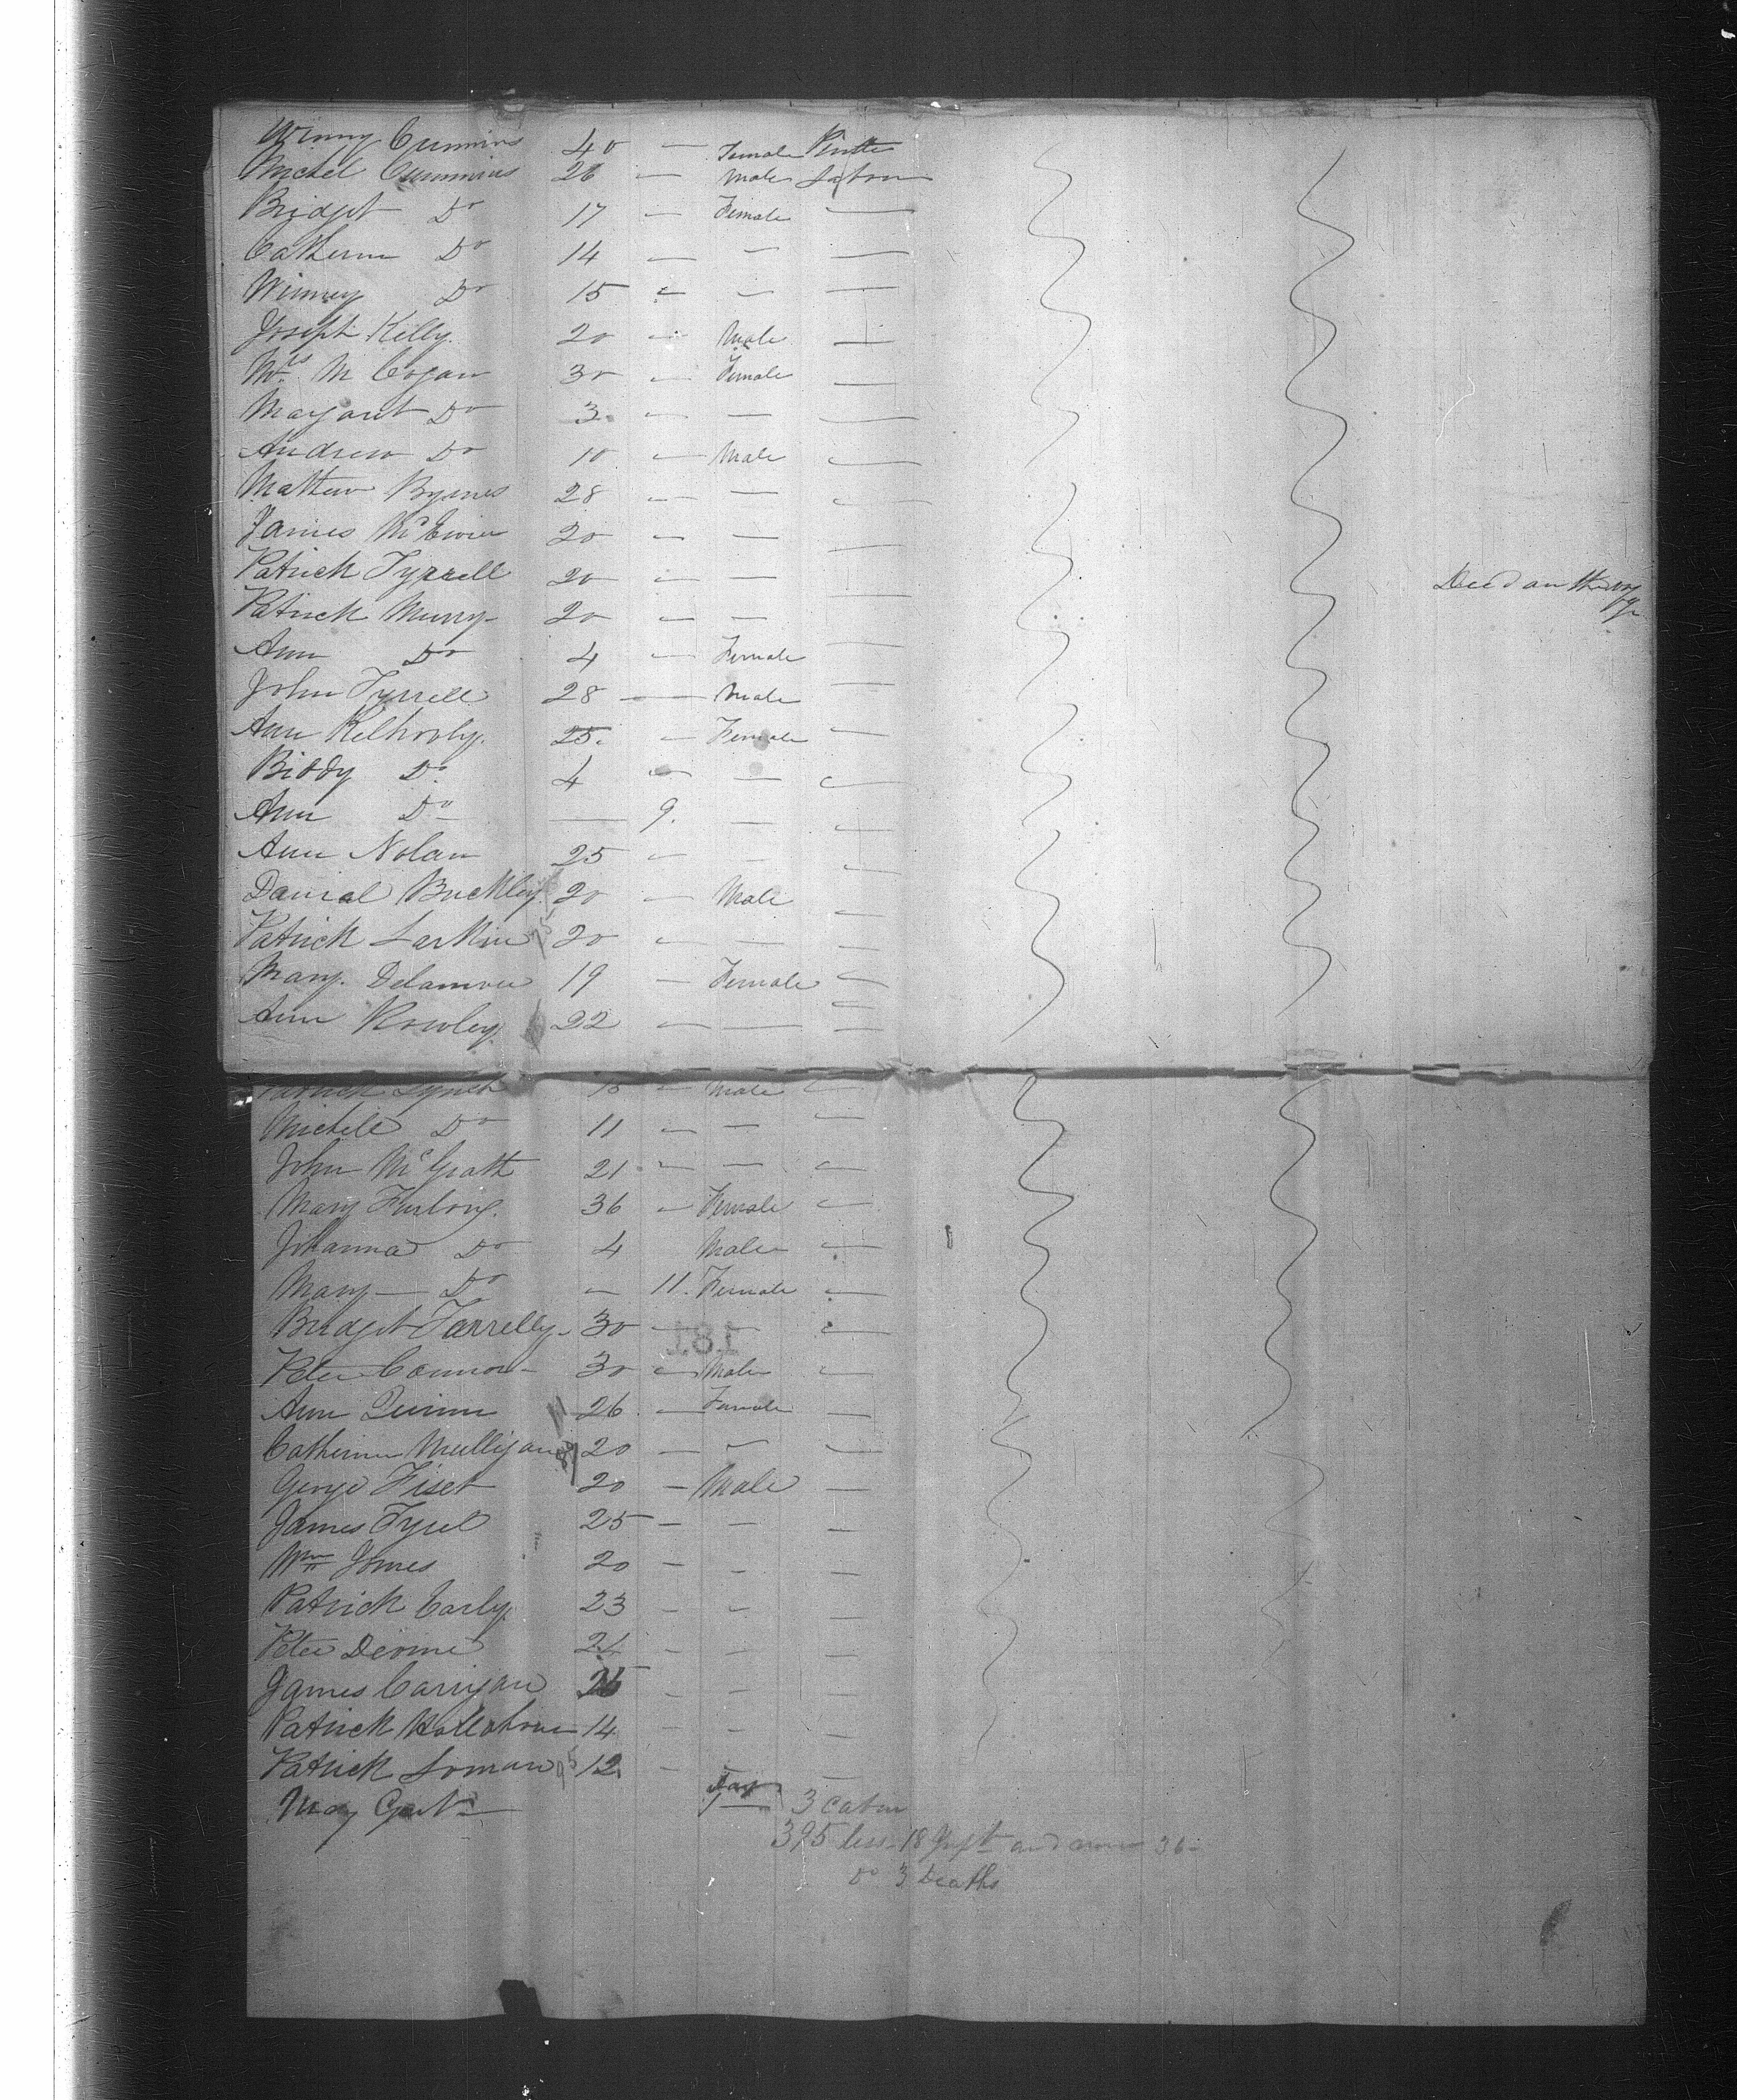 Winny Cummins 40 — Female
Michel Cummins 26 — Male Labour
Bridget Do 17 — Female —
Catherin Do 14 — — —
Winney Do 15 — — —
Joseph Kelly. 20 — Male —
Mrs M Cogan 30 — Female —
Margaret Do 3 — — —
Andrew Do 10 — Male —
Mathew Byrnes 28 — — —
James 20 — — —
Patrick Tyrrell 20 — — — Died on the voyge
Patrick Murry 20 — — —
Ann Do 4 — Female —
John Tyrrell 28 — Male —
Ann Kilhooly. 25. — Female —
Biddy Do. 4 — — —
Ann Do — 9. — —
Ann Nolan 25 — — —
Danial Buckley. 20 — Male —
Patrick Larkin 20 — — —
Mary. Delamore 19 — Female —
Ann Rowley. 22 — — —
Patrick Lynch — Male —
Michele Do 11 — — —
John McGrath 21 — — —
Mary Furlong. 36 — Female —
Johanna Do 4 Male —
Mary — Do — 11. Female —
Bridget Farrelly 30 — — —
181
Peter Connor 30 — Male —
Ann Quinn 26 — Female —
Catherine Mulligan 20 — — —
George Fiset 20 — Male —
James Tyrel 25 — — —
Wm Jones 20 — — —
Patrick Carly. 23 — — —
Peter Devine 21 — — —
James Carrigan — — —
Patrick Hollohone 14 — — —
Patrick Loman 12 — — —
Mary
3 Cabin
395 less 18 36
Do 3 Deaths